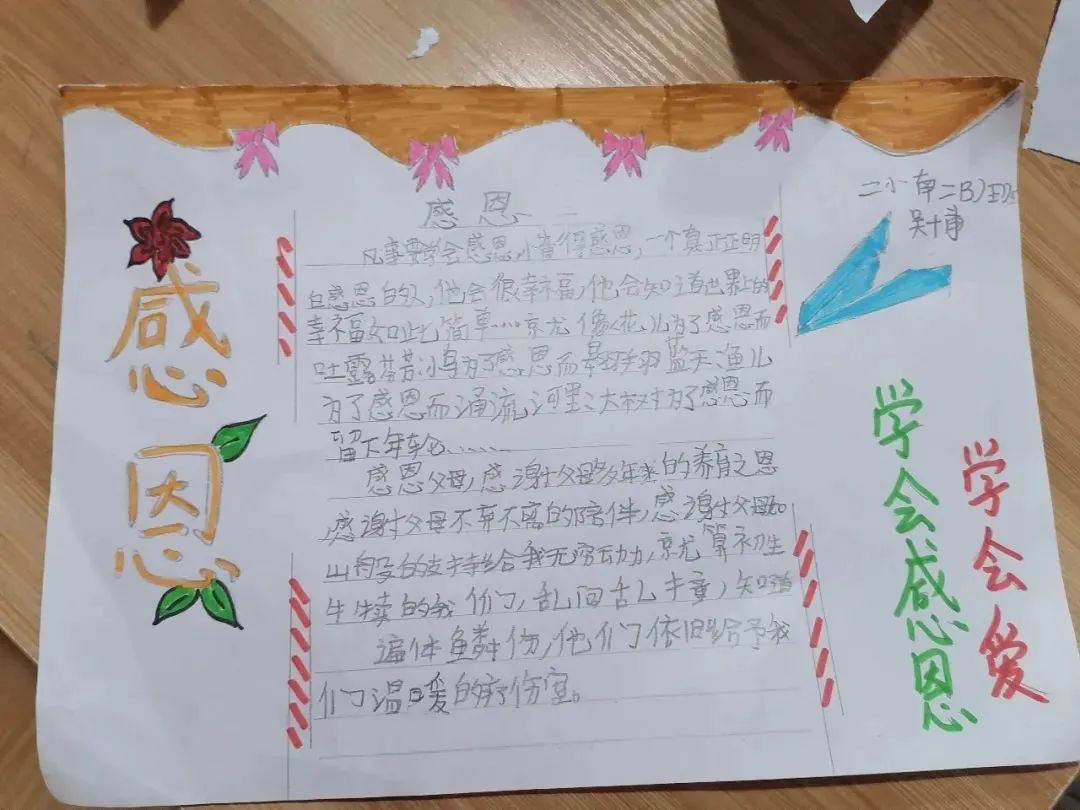 感恩
感恩
凡事要学会感恩,小富得感恩,一个真正正明
白感恩的人,他会很幸福,他会知道世界上的
幸福如此简单……京尤像花儿为了感恩而
吐露芬芳小鸟为了感恩而翱翔蓝天渔儿
为了感恩而涌流河里大树为了感恩而
留下年轮……
感恩父母,感谢父母多年来的养育之恩
感谢父母不弃不离的陪伴,感谢父母如
山般的支持给我无穷动力,京尤算初生
牛犊的我们,乱闯乱撞,知道
遍体鳞伤,他们依旧给予我
们温暖的疗伤室。
二小
学会感恩
学会爱